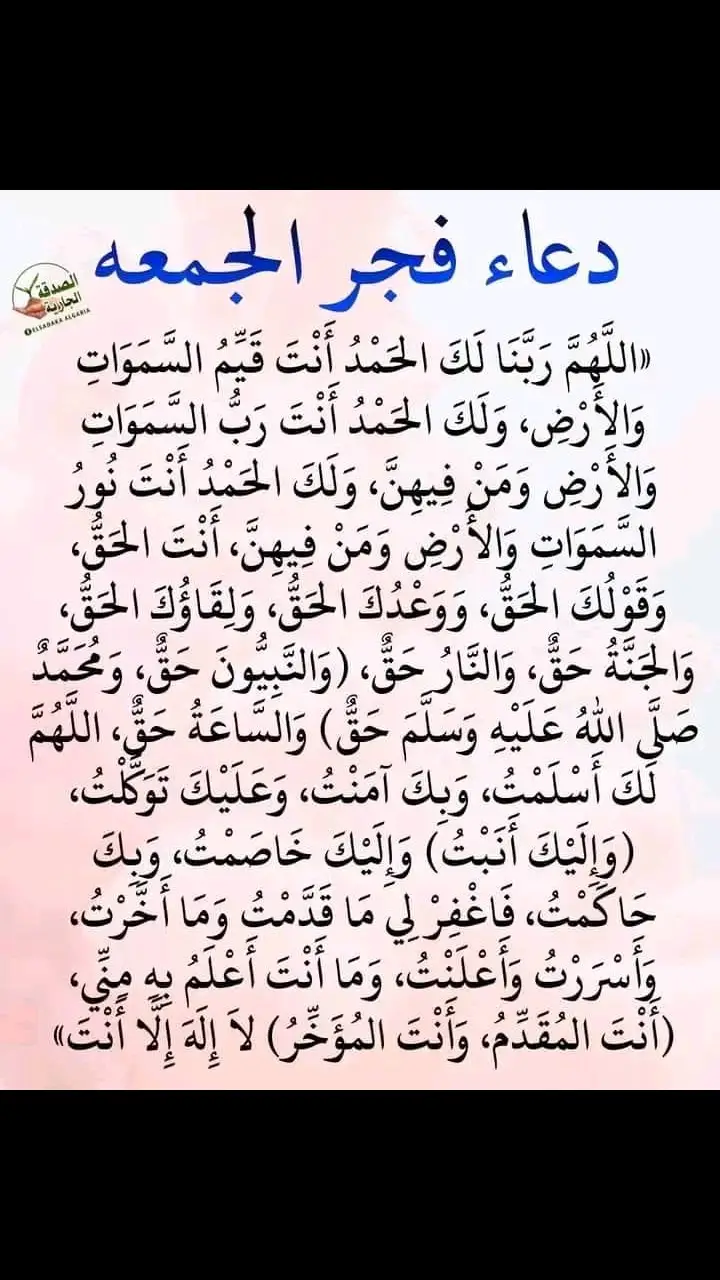 دعاء فجر الجمعه
الصدقة
الجارية
ELSADAKA ALGARIA
«اللَّهُمَّ رَبَّنَا لَكَ الحَمْدُ أَنْتَ قَيِّمُ السَّمَوَاتِ
وَالأَرْضِ، وَلَكَ الحَمْدُ أَنْتَ رَبُّ السَّمَوَاتِ
وَالأَرْضِ وَمَنْ فِيهِنَّ، وَلَكَ الحَمْدُ أَنْتَ نُورُ
السَّمَوَاتِ وَالأَرْضِ وَمَنْ فِيهِنَّ، أَنْتَ الحَقُّ،
وَقَوْلُكَ الحَقُّ، وَوَعْدُكَ الحَقُّ، وَلِقَاؤُكَ الحَقُّ،
وَالجَنَّةُ حَقٌّ، وَالنَّارُ حَقٌّ، (وَالنَّبِيُّونَ حَقٌّ، وَمُحَمَّدٌ
صَلَّى اللهُ عَلَيْهِ وَسَلَّمَ حَقٌّ) وَالسَّاعَةُ حَقٌّ، اللَّهُمَّ
لَكَ أَسْلَمْتُ، وَبِكَ آمَنْتُ، وَعَلَيْكَ تَوَكَّلْتُ،
(وَإِلَيْكَ أَنَبْتُ) وَإِلَيْكَ خَاصَمْتُ، وَبِكَ
حَاكَمْتُ، فَاغْفِرْ لِي مَا قَدَّمْتُ وَمَا أَخَّرْتُ،
وَأَسْرَرْتُ وَأَعْلَنْتُ، وَمَا أَنْتَ أَعْلَمُ بِهِ مِنِّي،
(أَنْتَ المُقَدِّمُ، وَأَنْتَ المُؤَخِّرُ) لاَ إِلَهَ إِلَّا أَنْتَ»